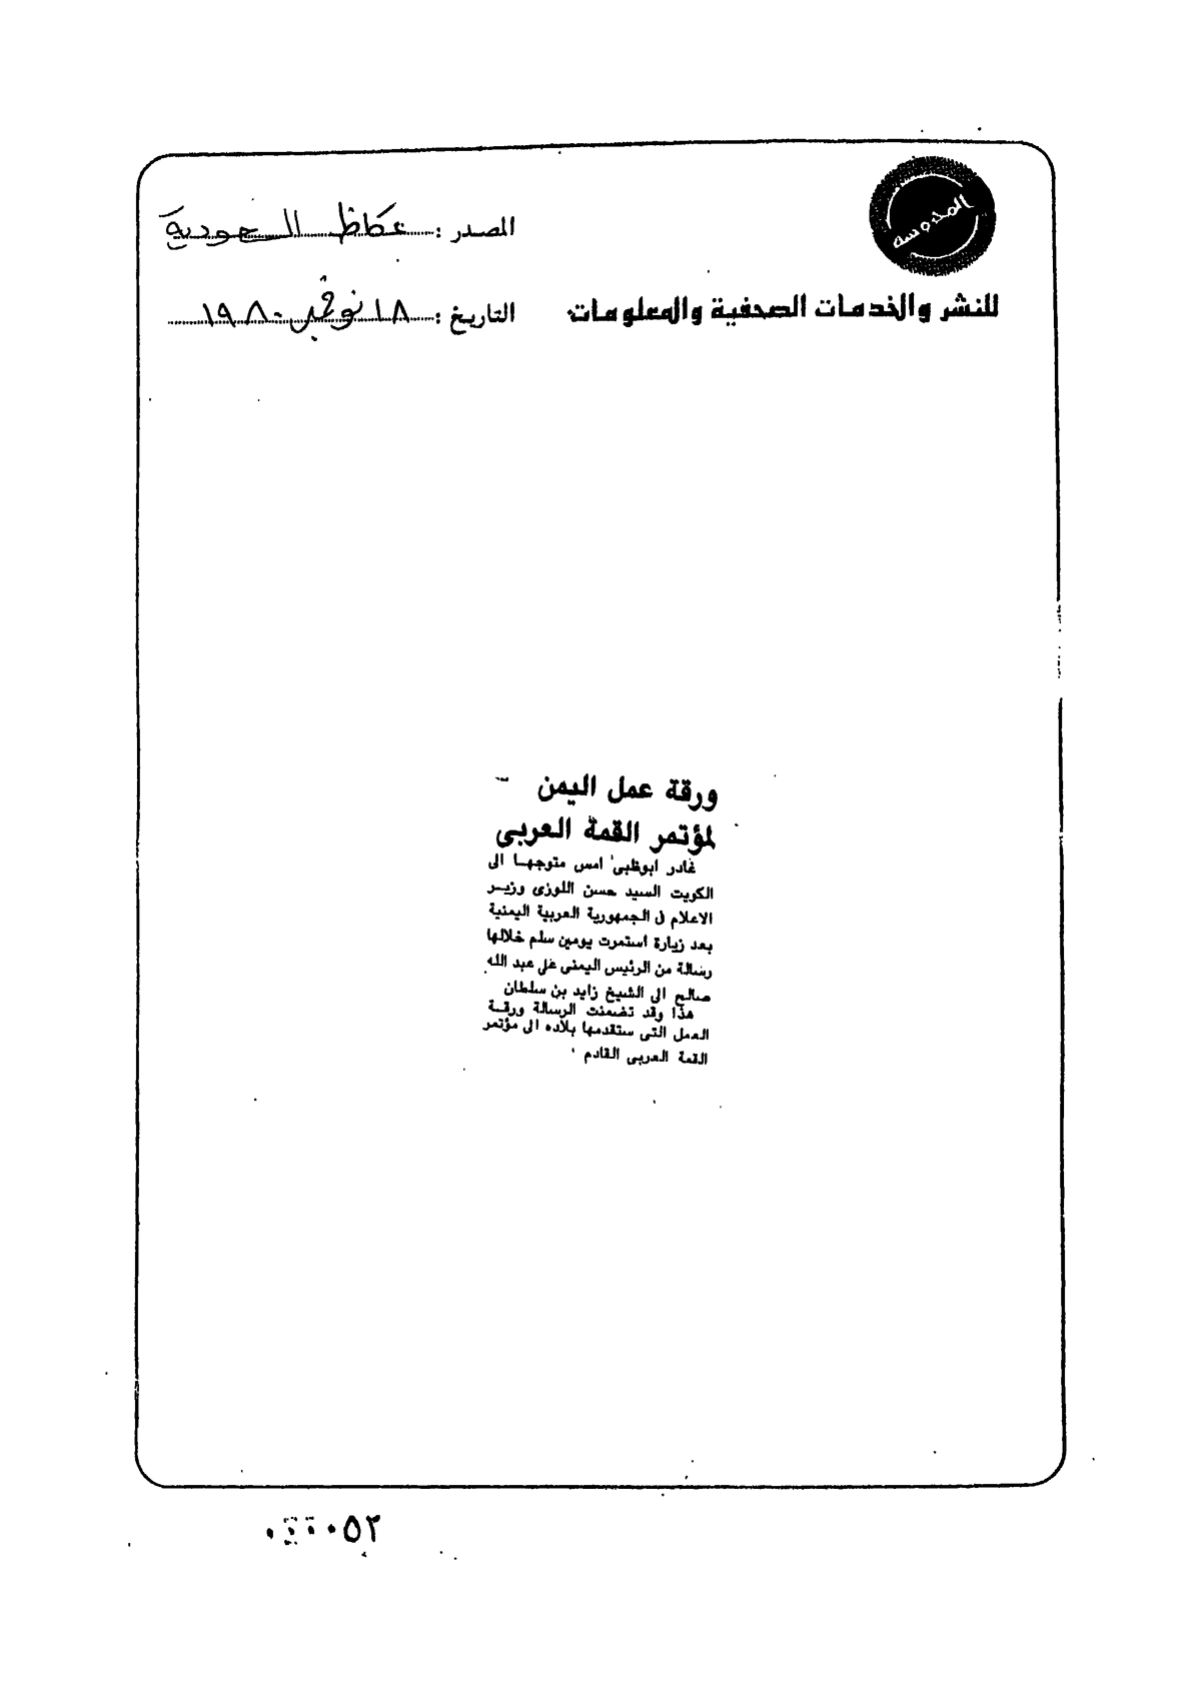 المحروسة
للنشر والخدمات الصحفية والمعلومات
المصدر : عكاظ السعودية
التاريخ : ١٨ نوفمبر ١٩٨٠
ورقة عمل اليمن
لمؤتمر القمة العربى
غادر ابوظبى امس متوجهـا الى
الكويت السيد حسن اللوزى وزيـر
الاعلام فى الجمهورية العربية اليمنية
بعد زيارة استمرت يومين سلم خلالها
رسالة من الرئيس اليمنى على عبد الله
صالح الى الشيخ زايد بن سلطان
هذا وقد تضمنت الرسالة ورقـة
العمل التى ستقدمها بلاده الى مؤتمر
القمة العربى القادم
٠٥٢